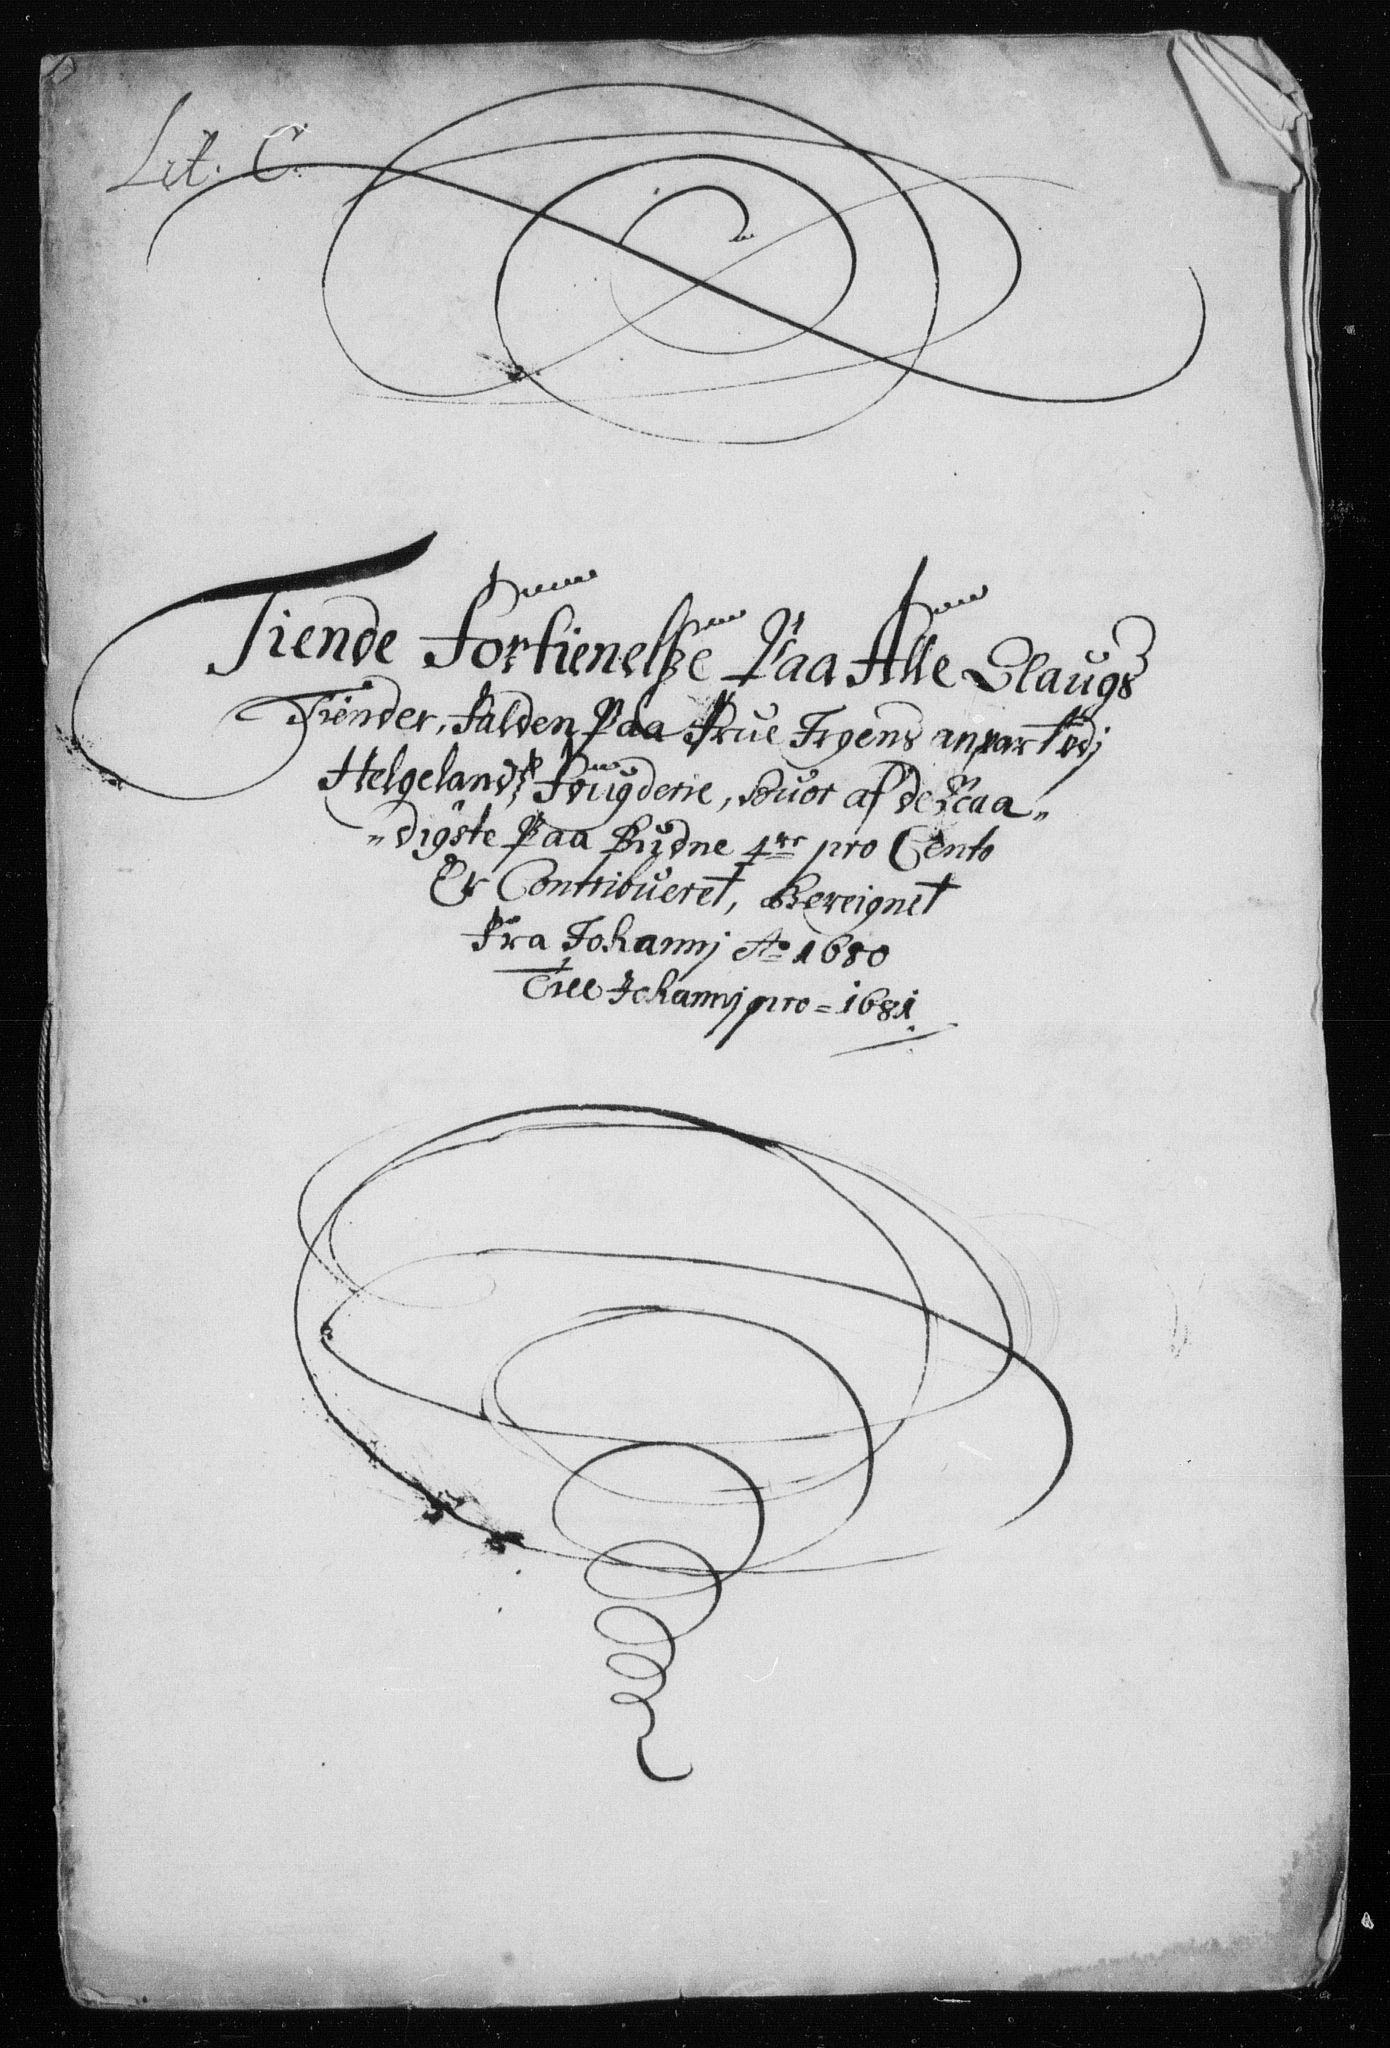 Lit. C.
Tiende Fortienelsze Paa Alle Slaugs
Tiender, Falden Paa Frue Irgens anpart udj
Helgelands Fougderie, huor af de Raa„
„digste Paa Bydne 4 pro Cento
Er Contribueret, Bereignet
Fra Johannj Ao 1680
Till Johannj pro = 1681